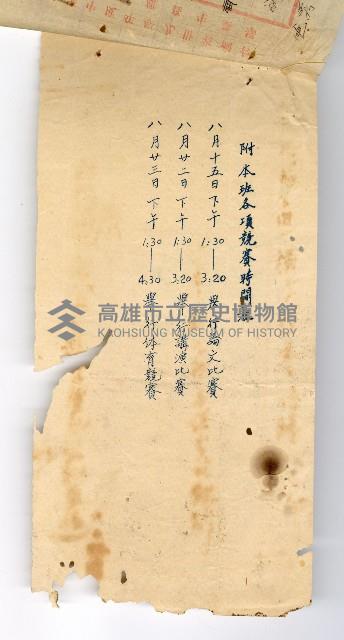 附本班各項競賽時間
八月十五日下午1:30—3:20舉行論文比賽
八月廿二日下午1:30—3:20舉行講演比賽
八月廿三日下午1:30—4:30舉行体育競賽
高雄市立歷史博物館
KAOHSIUNG MUSEUM OF HISTORY